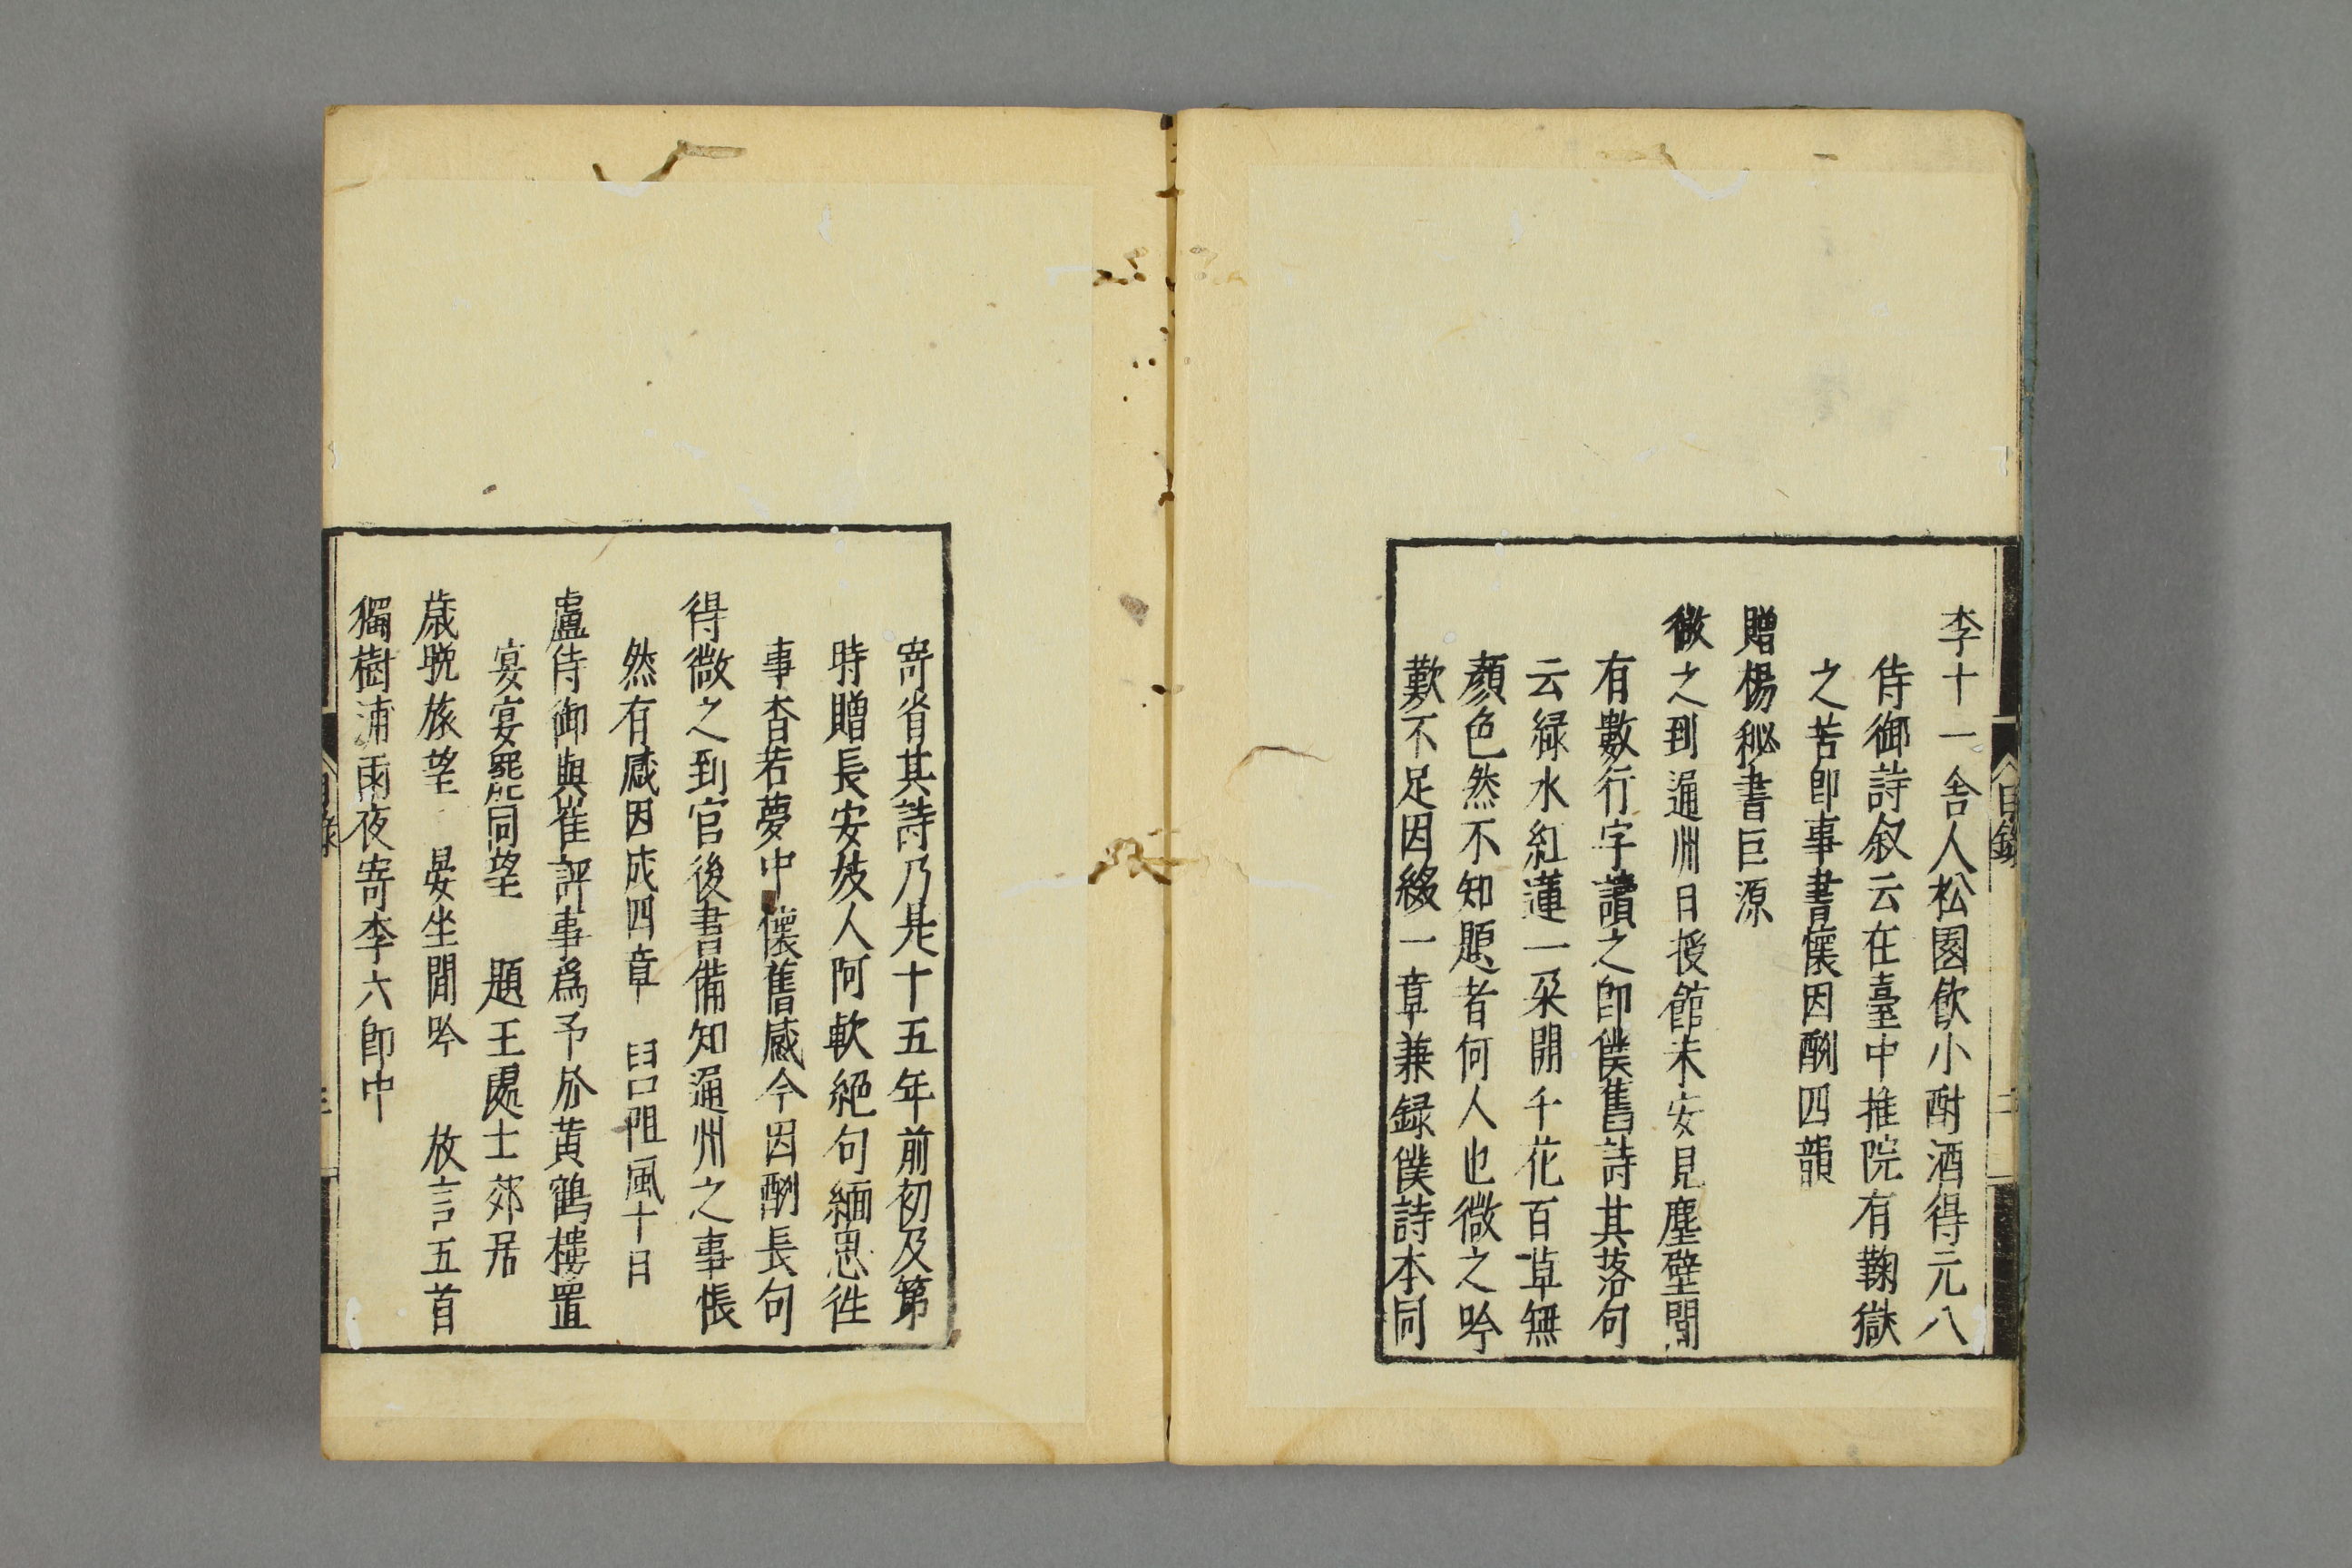 李十一舎人松園飲小酎酒得元八
侍御詩叙云在臺中推院有鞫獄
之苦即事書懷因酬四韻
贈楊秘書巨源
微之到通州日授館未安見塵壁間
有數行字讀之即僕舊詩其落句
云緑水紅蓮一朶開千花百草無
顔色然不知題者何人也微之吟
歎不足因綴一章兼録僕詩本同
目録
二
寄省其詩乃是十五年前初及第
時贈長安妓人阿軟絶句緬思徃
事杳若夢中懷舊感今因酬長句
得微之到官後書備知通州之事悵
然有感因成四章　臼口阻風十日
盧侍御與崔評事為予於黄鶴樓置
宴宴罷同望　題王處士郊居
歳晩旅望　晏坐閒吟　放言五首
獨樹浦雨夜寄李六郎中
目録
三